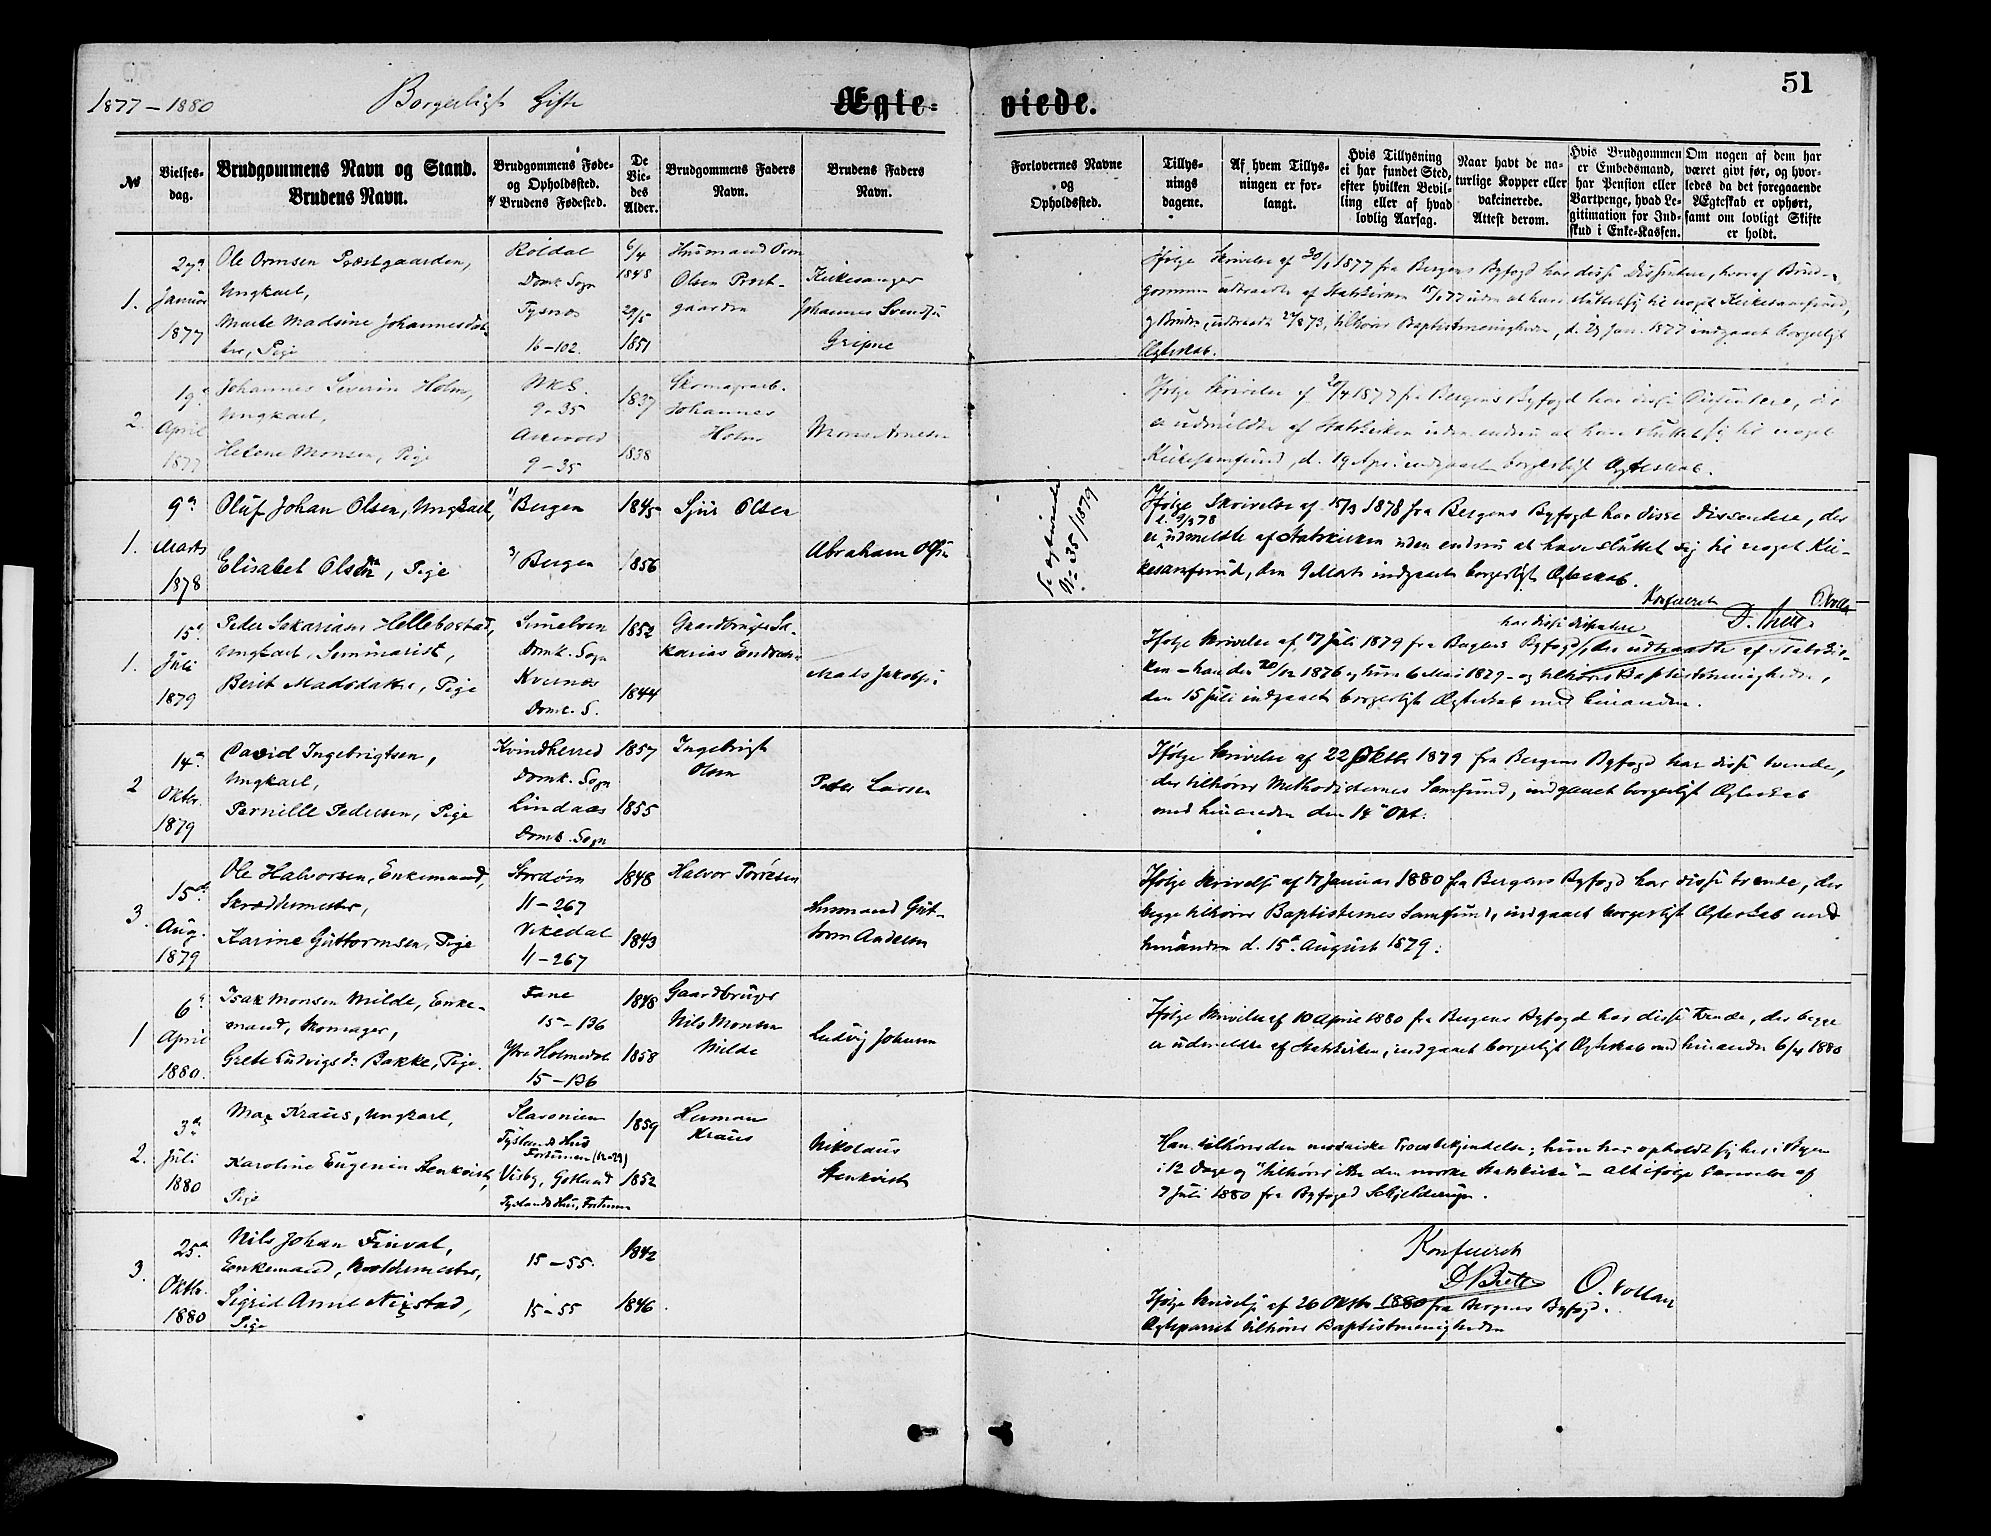 51
1877 – 1880 Borgerligt Gifte Ægte- viede.
№
Vielses-
dag.
Brudgommens Navn og Stand.
Brudens Navn.
Brudgommens Føde-
og Opholdssted.
Brudens Fødested.
De
Vie-
des
Alder.
Brudgommens Faders
Navn.
Brudens Faders
Navn.
Forlovernes Navne
og
Opholdssted.
Tillys-
nings
dagene.
Af hvem Tillys-
ningen er for-
langt.
Hvis Tillysning
ei har fundet Sted,
efter hvilken Bevil-
ling eller af hvad
lovlig Aarsag.
Naar havt de na-
turlige Kopper eller
vakcinerede.
Attest derom.
Hvis Brudgommen
er Embedsmand,
har Pension eller
Vartpenge, hvad Le-
gitimation for Ind-
skud i Enke-Kassen.
Om nogen af dem har
været givt før, og hvor-
ledes da det foregaaende
Ægteskab er ophørt,
samt om lovligt Skifte
er holdt.
1.
27de
Januar
1877
Ole Ormsen Præstgaarden,
Ungkarl,
Marte Madsine Johannesdat-
ter, Pige
Røldal
Domk. Sogn
Tysnæs
16–102.
6/4
1848
29/5
1851
Husmand Orm
Olsen Præst-
gaarden
Kirkesanger
Johannes Svendsen
Gripne
Ifølge Skrivelse af 30/1 1877 fra Bergens Byfogd har disse Dissentere, hvoraf Brud-
gommen udtraadte af Statskirken 15/1 77 uden at have sluttet sig til noget Kirkesamfund,
og Bruden, udtraadt 873, tilhører Baptistmenigheden, d. 27 Jan. 1877 indgaaet borgerligt
Ægteskab.
2.
19de
April
1877
Johannes Severin Holm,
Ungkarl,
Helene Monsen, Pige
NKS.
9–35
Askevold
9–35
1837
1838
Skomagerarb.
Johannes
Holm
Mons Arnesen
Ifølge Skrivelse af 20/4 1877 fra Bergens Byfogd har disse Dissentere, der
er udmeldte af Statskirken uden endnu at have sluttet sig til noget
Kirkesamfund, d. 19 April indgaaet borgerligt Ægteskab.
1.
9de
Marts
1878
Oluf Johan Olsen, Ungkarl,
Elisabet Olsen, Pige
1/ Bergen
3/ Bergen
1845
1856
Sjur Olsen
Abraham Olsen
Se egteviede
No 35/1879
Ifølge Skrivelse af 15/3 1878 fra Bergens Byfogd har disse Dissentere, der
er udmeldte af Statskirken uden endnu at have sluttet sig til noget Kir-
kesamfund, den 9 Marts indgaaet borgerligt Ægteskab.
Konfereret
1.
15de
Juli
1879
Peder Sakariasen Hellebostad,
Ungkarl, Seminarist,
Berit Madsdatter, Pige
Domk. Sogn
Kvernes
Domk. S.
1852
1844
Gaardbruger Sa-
karias Endresen
Mads Jakobsen
har disse Dissentere
Ifølge Skrivelse af 17 Juli 1879 fra Bergens Byfogd, der udtraadte af Statskir-
ken – han den 20/12 1876 og hun 6 Mai 1879 – og tilhører Baptistmenigheden,
den 15 Juli indgaaet borgerligt Ægteskab med hinanden.
2
14de
Oktbr.
1879
David Ingebrigtsen,
Ungkarl,
Pernille Pedersen, Pige
Kvindherred
Domk. Sogn
Lindaas
Domk. Sogn
1857
1855
Ingebrigt
Olsen
Peder Larsen
Ifølge Skrivelse af 22 Oktbr 1879 fra Bergens Byfogd har disse tvende,
der tilhører Methodisternes Samfund, indgaaet borgerligt Ægteskab
med hinanden den 14de Okt.
3.
15de
Aug.
1879
Ole Halvorsen, Enkemand,
Skræddermester,
Karine Guttormsen, Pige
Stordøen
11–267
Vikedal
11–267
1848
1843
Halvor Torresen
Husmand Gut-
torm Andersen
Ifølge Skrivelse af 17 Januar 1880 fra Bergens Byfogd har disse tvende, der
begge tilhører Baptisternes Samfund, indgaaet borgerligt Ægteskab med
hinanden d. 15de August 1879.
1
6te
April
1880.
Isak Monsen Milde, Enke-
mand, Skomager,
Grete Ludvigsdr. Bakke, Pige.
Fane
15–136
Ytre Holmedal
15–136
1848
1858
Gaardbruger
Nils Monsen
Milde
Ludvig Johnsen
Ifølge Skrivelse af 10 April 1880 fra Bergens Byfogd har disse tvende, der begge
er udmeldte af Statskirken, indgaaet borgerligt Ægteskab med hinanden 6/4 1880
2.
3de
Juli
1880
Max Kraus, Ungkarl,
Karoline Eugenia Stenkvist,
Pige
Slavonien
Tysland
Fortunen (12–29)
Visby, Gotland
Tyslands Hus, Fortunen
1859
1852
Herman
Kraus
Nikolaus
Stenkvist
Han tilhører den mosaiske Troesbekjendelse; hun har opholdt sig her i Byen
i 12 Dage og "tilhører ikke den norske Statskirke" – alt ifølge Skrivelse af
7 Juli 1880 fra Byfoged Schjelderup.
3.
25de
Oktbr.
1880
Nils Johan Finval,
Enkemand,
Sigrid Anne Nigstad,
Pige
15–55.
15–55
1842
1846
Konfereret
O. Vollan
Ifølge Skrivelse af 26 Oktbr 1880 fra Bergens Byfogd.
Ægteparret tilhører Baptistmenigheden